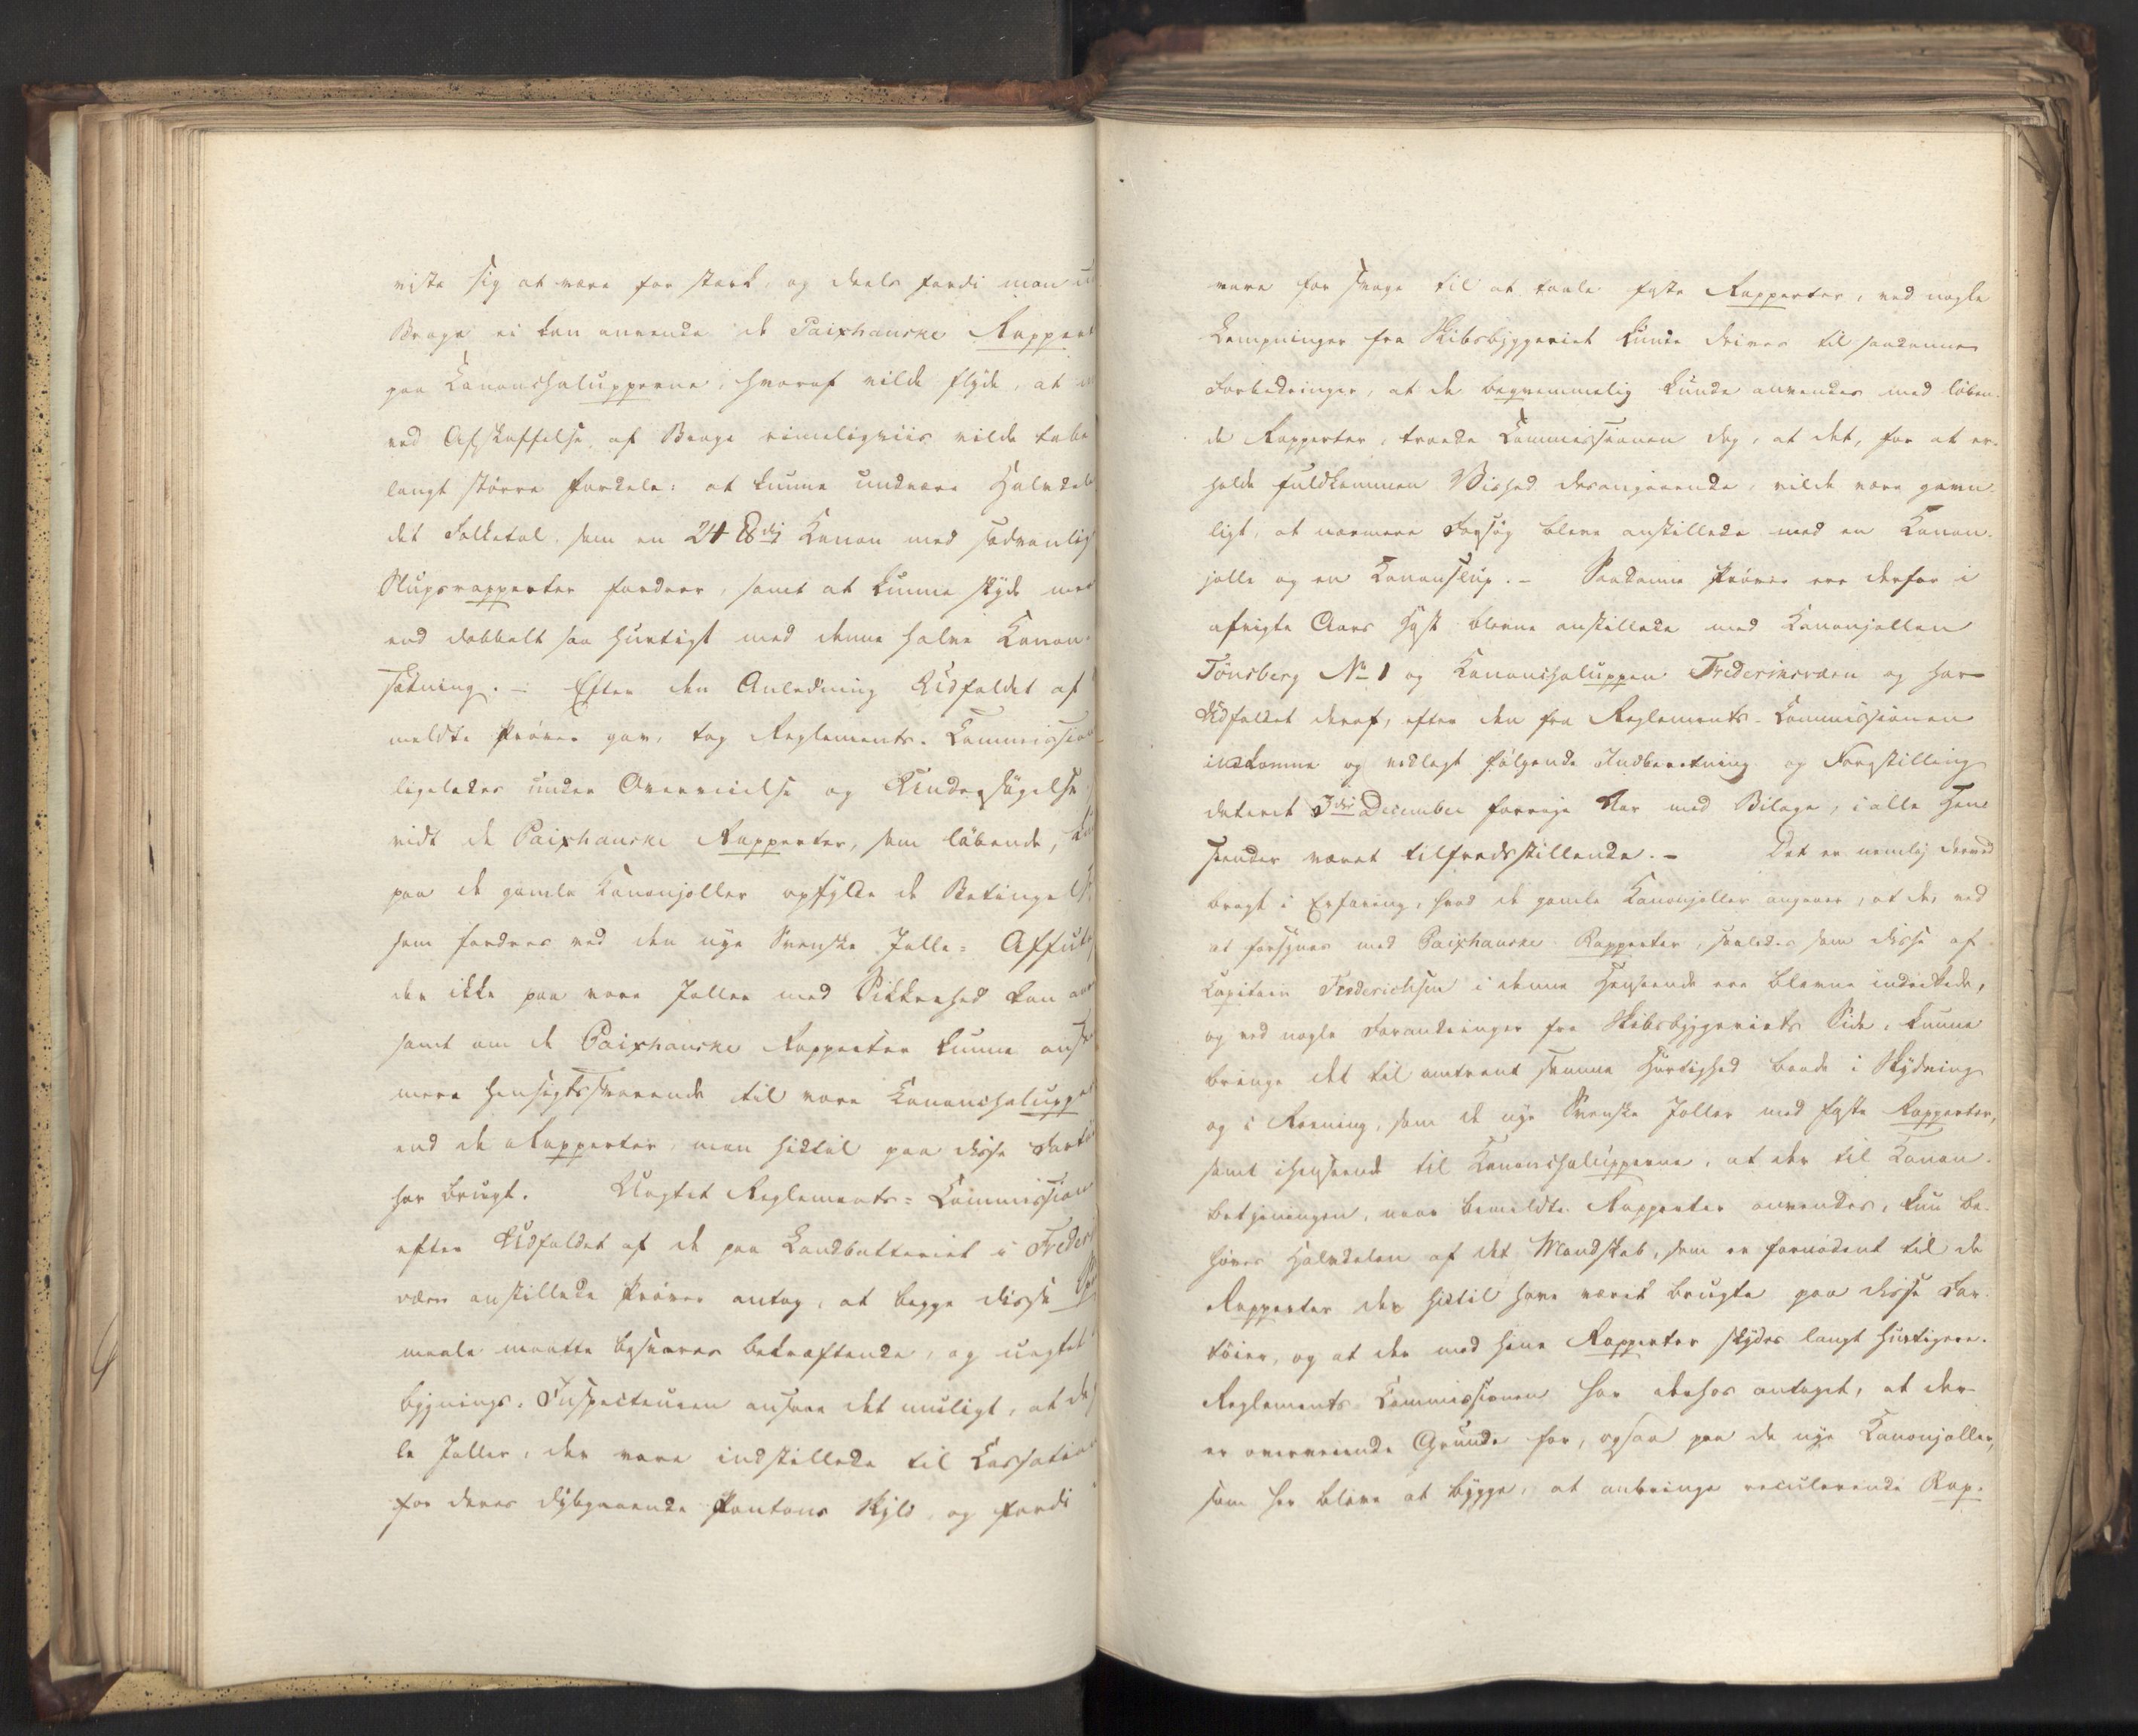 viste sig at være for stærk, og deels fordi man ud
Brage ei kan anvende de Paixhanske Rappert
paa Kanonchalupperne, hvoraf vilde flyde, at m
ved Afskaffelse af Brage rimeligviis vilde tabe
langt større Fordele: at kunne undvære Halvdele
det Folketal, som en 24 ℔dig Kanon med sædvanlig
Slupsrapperter fordrer, samt at kunne skyde mer
end dobbelt saa hurtigt med denne halve Kanon-
sætning. – Efter den Anledning Udfaldet af
meldte Prøver gav, tog Reglements-Commission
ligeledes under Overveielse og Undersøgelse
vidt de Paixhanske Rapperter, som løbende,
paa de gamle Kanonjoller opfylde de Betingelse
som fordres ved den nye Svenske Jolle-Affut
der ikke paa vore Joller med Sikkerhed kan
samt om de Paixhanske Rapperter kunne ans
mere hensigtssvarende til vore Kanonchalupp
end de Rapperter man hidtil paa disse Fartø
har brugt. Uagtet Reglements-Commission
efter Udfaldet af de paa Landbatteriet i Frederi
værn anstillede Prøver antog, at begge disse Sp
maale maatte besvares bekræftende, og uagtet
bygnings-Inspecteuren ansaae det muligt, at de
le Joller, der vare indstillede til Cassation
for deres dybgaaende Pontons Skyld, og fordi
vare for svage til at taale faste Rapperter, ved nogle
Lempninger fra Skibsbyggeriet kunde drives til saadanne
Forbedringer, at de beqvemmelig kunde anvendes med løben-
de Rapperter, troede Commissionen dog, at det, for at er-
holde fuldkommen Vished desangaaende, vilde være gavn-
ligt, at nærmere Forsøg bleve anstillede med en Kanon-
jolle og en Kanonslup. – Saadanne Prøver ere derfor i
afvigte Aars Høst blevne anstillede med Kanonjollen
Tönsberg No 1 og Kanonchaluppen Frederiksværn og har
Udfaldet deraf, efter den fra Reglements-Commissionen
indkomne og vedlagt følgende Indberetning og Forestilling
dateret 3die December forrige Aar med Bilage, i alle Hen-
seender været tilfredsstillende. – Det er nemlig derved
bragt i Erfaring, hvad de gamle Kanonjoller angaaer, at de, ved
at forsynes med Paixhanske Rapperter, saaledes som disse af
Capitain Frederichsen i denne Henseende ere blevne indrettede,
og ved nogle Forandringer fra Skibsbyggeriets Side, kunne
bringe det til omtrent samme Hurtighed baade i Skydning
og i Roening, som de nye Svenske Joller med faste Rapperter,
samt i Henseende til Kanonchalupperne, at der til Kanon-
betjeningen, naar bemeldte Rapperter anvendes, kun be-
høves Halvdelen af det Mandskab, som er fornødent til de
Rapperter der hidtil have været brugte paa disse Far-
tøier, og at der med hine Rapperter skydes langt hurtigere.
Reglements-Commissionen har derhos antaget, at der
er overveiende Grunde for, ogsaa paa de nye Kanonjoller,
som her bleve at bygge, at anbringe reculerende Rap-